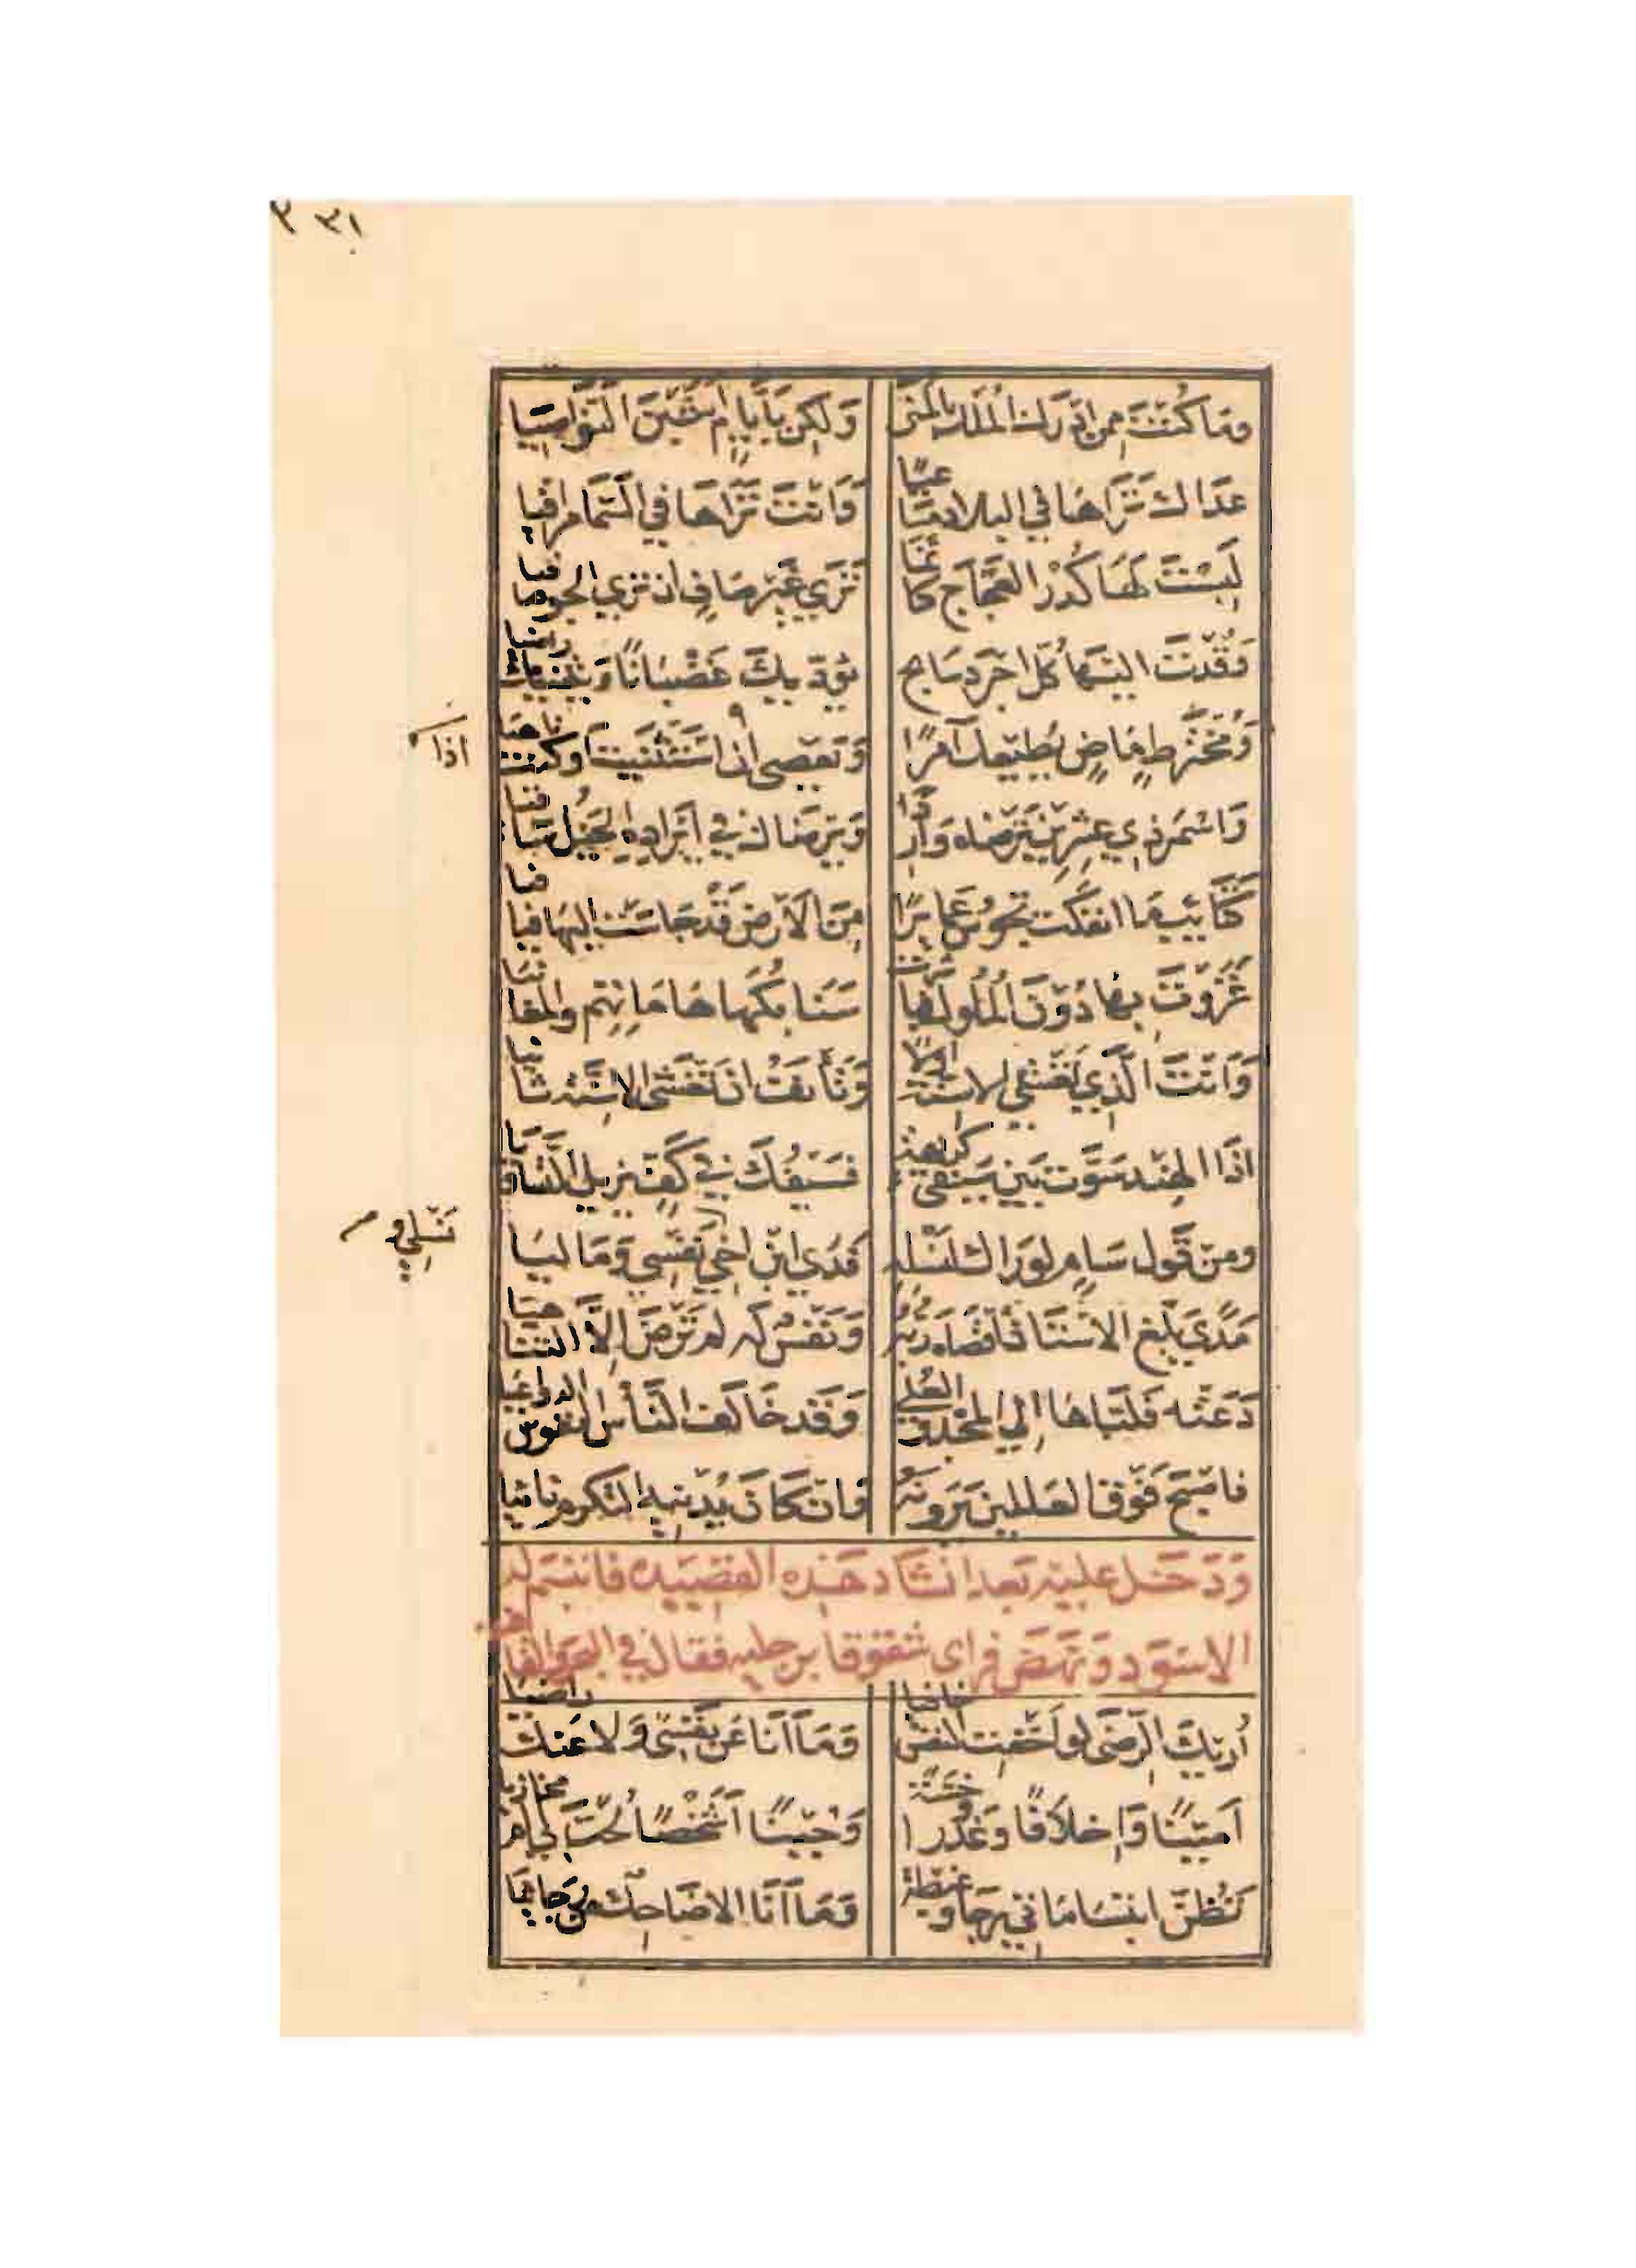 ٣٣١
وَمَا كُنْتَ مِمَّن اَدْرَكَ المُلْكَ بِالمُنَى وَلَكِن بِاَيَّامٍ اَشَبْنَ النَّوَاصِيَا
عِدَاكَ تَرَاهَا فِي البِلَادِ مَسَاعِيًا وَاَنْتَ تَرَاهَا فِي السَّمَا مَرَاقِيَا
لَبِسْتَ لَهَا كُدْرَ العَجَاجِ كَاَنَّمَا تَرَي غَيْرَ صَافٍ ان تَرَي الجَوَّ صَافِيَا
وَقُدْتَ اليْهَا كُلَّ اجْرَدَ سَابِحٍ يُؤَدِّيكَ غَضْبَانًا وَيَثْنِيكَ رَاضِيَا
وَمُخْتَرَطٍ مَاضٍ يُطِيعُكَ آمِرًا وَيَعْصِي اذا اسْتَثْنَيْتَ اَوْ كُنْتَ نَاهِيَا
اذا
وَاسْمَرَ ذِي عِشْرِينَ تَرْضَاهُ وَارِدًا وَيَرْضَاكَ فِي اِيْرَادِهِ الخَيْلَ سَاقِيَا
كَتَائِبَ مَا انفَكَّت تَجُوسُ عَمَائِرًا مِنَ الاَرْضِ قَدْ جَاسَتْ اليْهَا فَيَافِيَا
غَزَوْتَ بِهَا دُوْرَ المُلُوكِ فَبَاشَرَتْ سَنَابِكُهَا هَامَاتِهِم وَالمَغَانِيَا
وَاَنْتَ الَّذِي تَغْشَي الاسِنَّةَ اَوَّلًا وَتَأْنَفُ ان تَغْشَى الاسِنَّةَ ثَانِيَا
اذَا الهِنْد سَوَّت بَيْنَ سَيْفَي كَرِيهَةٍ فَسَيْفُكَ فِي كَفٍّ تُزِيلُ التَّسَاوِيَا
وَمِنْ قَوْلِ سَامٍ لَوْ رَاكَ لِنَسْلِهِ فِدَي ابْنِ اخِي نَسْلِي وَنَفْسِي وَمَالِيَا
نَسْلِي و
مَدًي بَلَّغَ الاسْتَاذَ اَقْصَاهُ رَبُّهُ وَنَفْسٌ لَهُ لَمْ تَرْضَ اِلَّا التَّنَاهِيَا
دَعَتْهُ فَلَبَّاهَا اِلَي المَجْدِ وَالعُلَي وَقَد خَالَفَ النَّاسُ النُّفُوسَ الدَّوَاعِيَا
فَاَصْبَحَ فَوْقَ العَالَمِينَ يَرَوْنَهُ وَان كَانَ يُدْنِيهِ التَّكَرُّمُ نَائِيَا
وَدَخَلَ عَلَيْهِ بَعْدَ انْشَادِ هَذِهِ القَصِيدَه فَابْتَسَمَ لَهُ
الاسْوَد وَنَهَضَ فَرَاى شقوقا برجليه فقال في
اُرِيْكَ الرِّضَى لَوْ اَخْفَتِ النَّفْسُ خَافِيَا وَمَا اَنَا عَنْ نَفْسِي وَلَا عَنْكَ رَاضِيَا
اَمَيْنًا وَاِخْلَافًا وَغَدْرًا وَخِسَّةً وَجُبْنًا اَشَخْصًا لُحْتَ لِي اَمْ مَخَازِيَا
تَظُنُّ ابْتِسَامَاتِي رَجَاءً وَغِبْطَةً وَمَا اَنَا الا ضَاحِكٌ مِنْ رَجَائِيَا